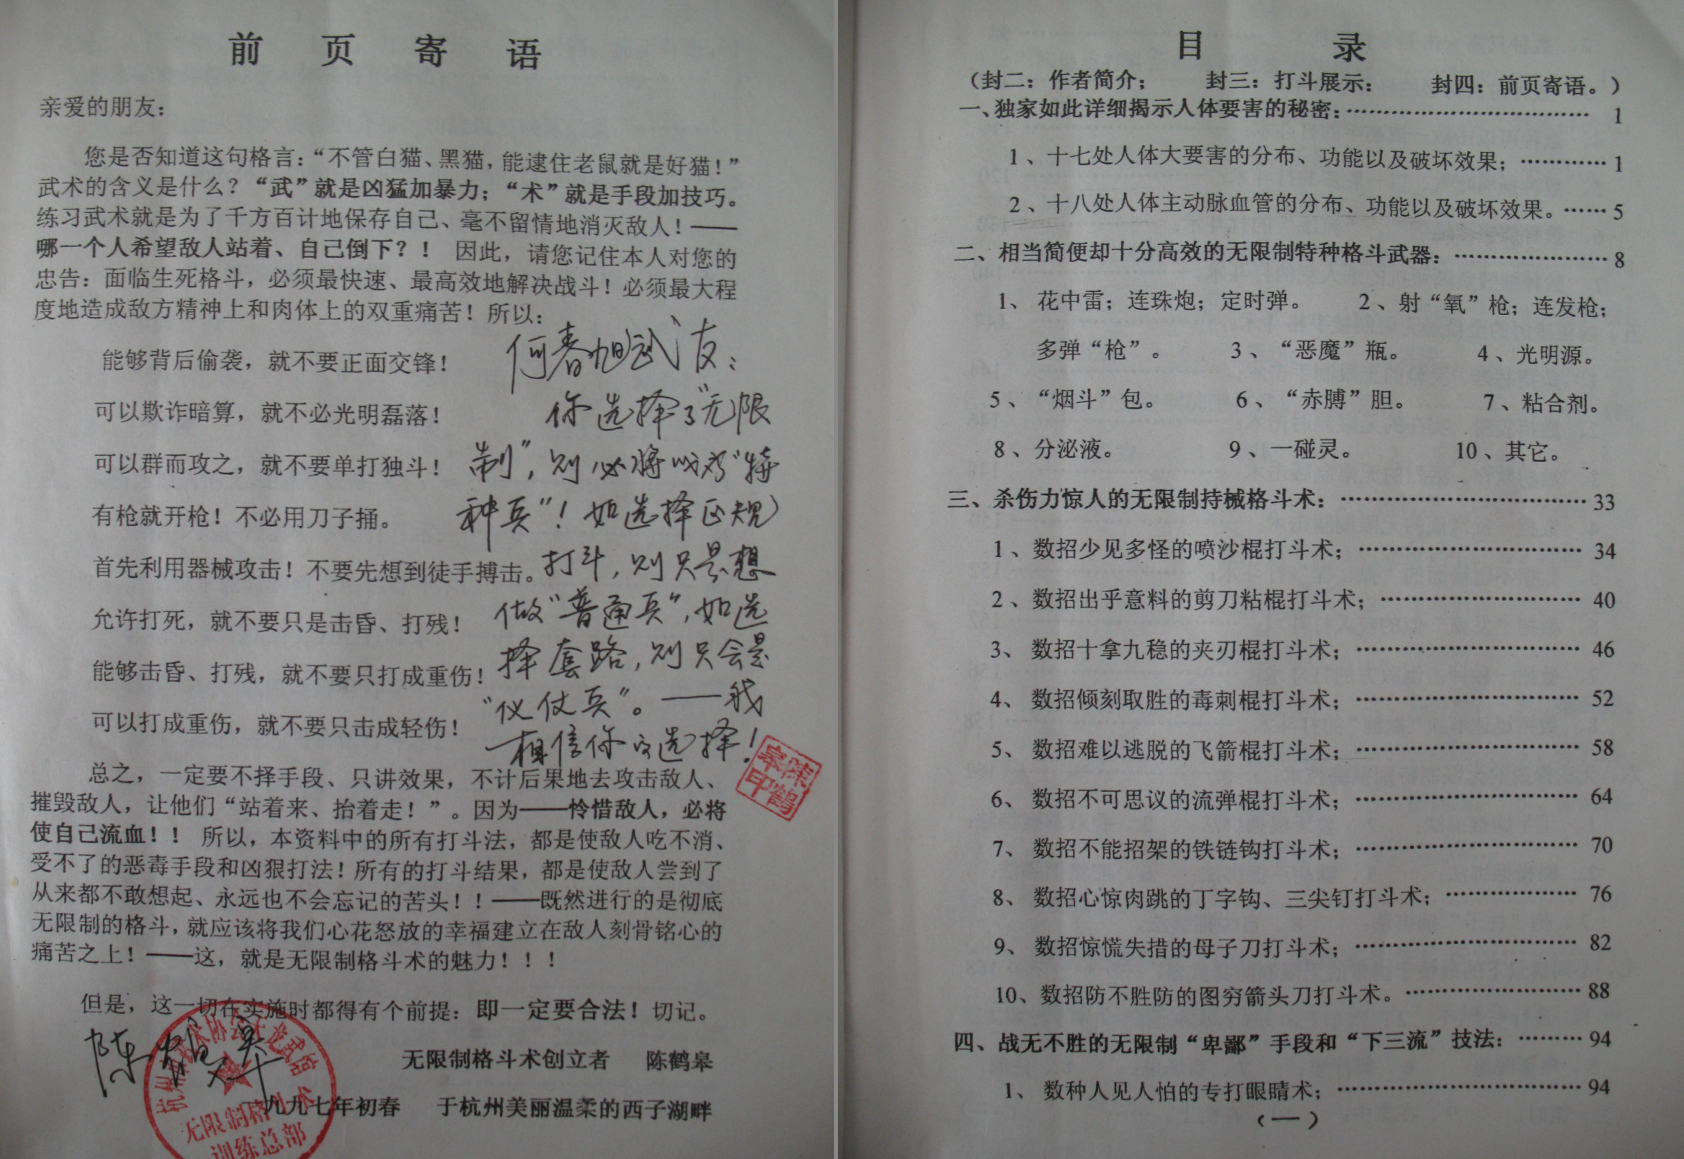 前页寄语
亲爱的朋友：
您是否知道这句格言：“不管白猫、黑猫，能逮住老鼠就是好猫！”
武术的含义是什么？“武”就是凶猛加暴力；“术”就是手段加技巧。
练习武术就是为了千方百计地保存自己、毫不留情地消灭敌人！——
哪一个人希望敌人站着、自己倒下？！ 因此，请您记住本人对您的
忠告：面临生死格斗，必须最快速、最高效地解决战斗！必须最大程
度地造成敌方精神上和肉体上的双重痛苦！所以：
能够背后偷袭，就不要正面交锋！
可以欺诈暗算，就不必光明磊落！
可以群而攻之，就不要单打独斗！
有枪就开枪！不必用刀子捅。
首先利用器械攻击！不要先想到徒手搏击。
允许打死，就不要只是击昏、打残！
能够击昏、打残，就不要只打成重伤！
可以打成重伤，就不要只击成轻伤！
何春旭武友：
你选择了“无限
制”，则必将成为“特
种兵”！如选择正规
打斗，则只是想
做“普通兵”，如选
择套路，则只会是
“仪仗兵”。——我
相信你的选择！
陈鹤皋印
总之，一定要不择手段、只讲效果，不计后果地去攻击敌人、
摧毁敌人，让他们“站着来、抬着走！”。因为——怜惜敌人，必将
使自己流血！！ 所以，本资料中的所有打斗法，都是使敌人吃不消、
受不了的恶毒手段和凶狠打法！所有的打斗结果，都是使敌人尝到了
从来都不敢想起、永远也不会忘记的苦头！！——既然进行的是彻底
无限制的格斗，就应该将我们心花怒放的幸福建立在敌人刻骨铭心的
痛苦之上！——这，就是无限制格斗术的魅力！！！
但是，这一切在实施时都得有个前提：即一定要合法！切记。
陈鹤皋
无限制格斗术创立者 陈鹤皋
一九九七年初春 于杭州美丽温柔的西子湖畔
无限制格斗
训练总部
目录
（封二：作者简介； 封三：打斗展示： 封四：前页寄语。）
一、独家如此详细揭示人体要害的秘密：…………………………… 1
1、十七处人体大要害的分布、功能以及破坏效果；………… 1
2、十八处人体主动脉血管的分布、功能以及破坏效果。…… 5
二、相当简便却十分高效的无限制特种格斗武器：……………… 8
1、 花中雷；连珠炮；定时弹。 2、射“氧”枪；连发枪；
多弹“枪”。 3、“恶魔”瓶。 4、光明源。
5、“烟斗”包。 6、“赤膊”胆。 7、粘合剂。
8、分泌液。 9、一碰灵。 10、其它。
三、杀伤力惊人的无限制持械格斗术：………………………… 33
1、数招少见多怪的喷沙棍打斗术；……………………… 34
2、数招出乎意料的剪刀粘棍打斗术；…………………… 40
3、 数招十拿九稳的夹刃棍打斗术；……………………… 46
4、 数招倾刻取胜的毒刺棍打斗术；……………………… 52
5、 数招难以逃脱的飞箭棍打斗术；……………………… 58
6、 数招不可思议的流弹棍打斗术；……………………… 64
7、 数招不能招架的铁链钩打斗术；……………………… 70
8、 数招心惊肉跳的丁字钩、三尖钉打斗术；…………… 76
9、 数招惊慌失措的母子刀打斗术；……………………… 82
10、数招防不胜防的图穷箭头刀打斗术。………………… 88
四、战无不胜的无限制“卑鄙”手段和“下三流”技法：……… 94
1、 数种人见人怕的专打眼睛术；………………………… 94
（一）